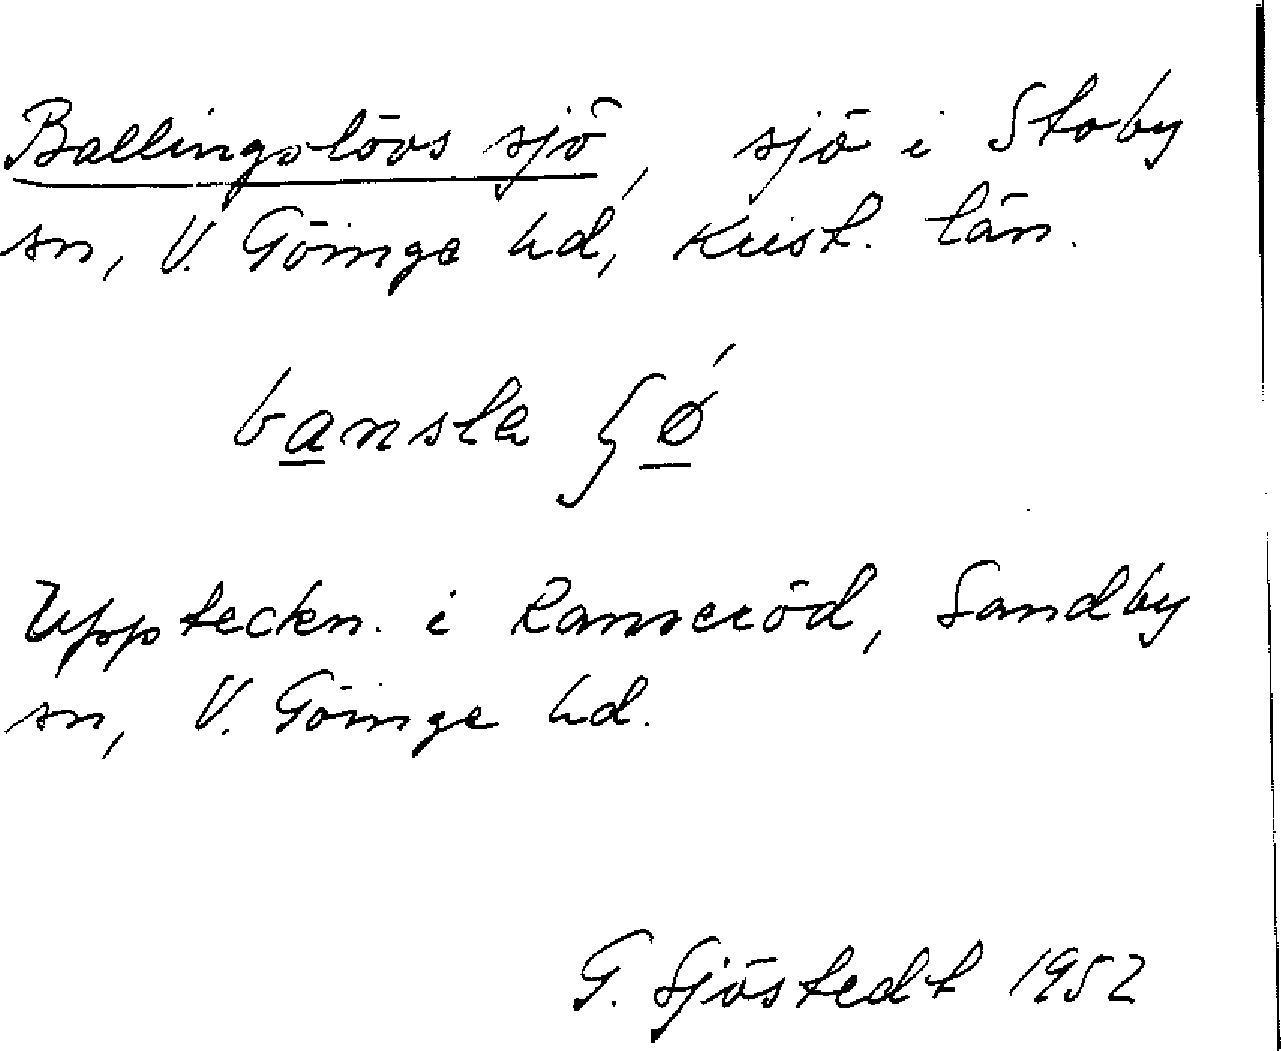 Ballingslövs sjö, sjö i Stoby
sn, V. Göinge hd, Krist. län.
bansla ʃø´
Uppteckn. i Ranseröd, Sandby
sn, V. Göinge hd.
G. Sjöstedt 1952